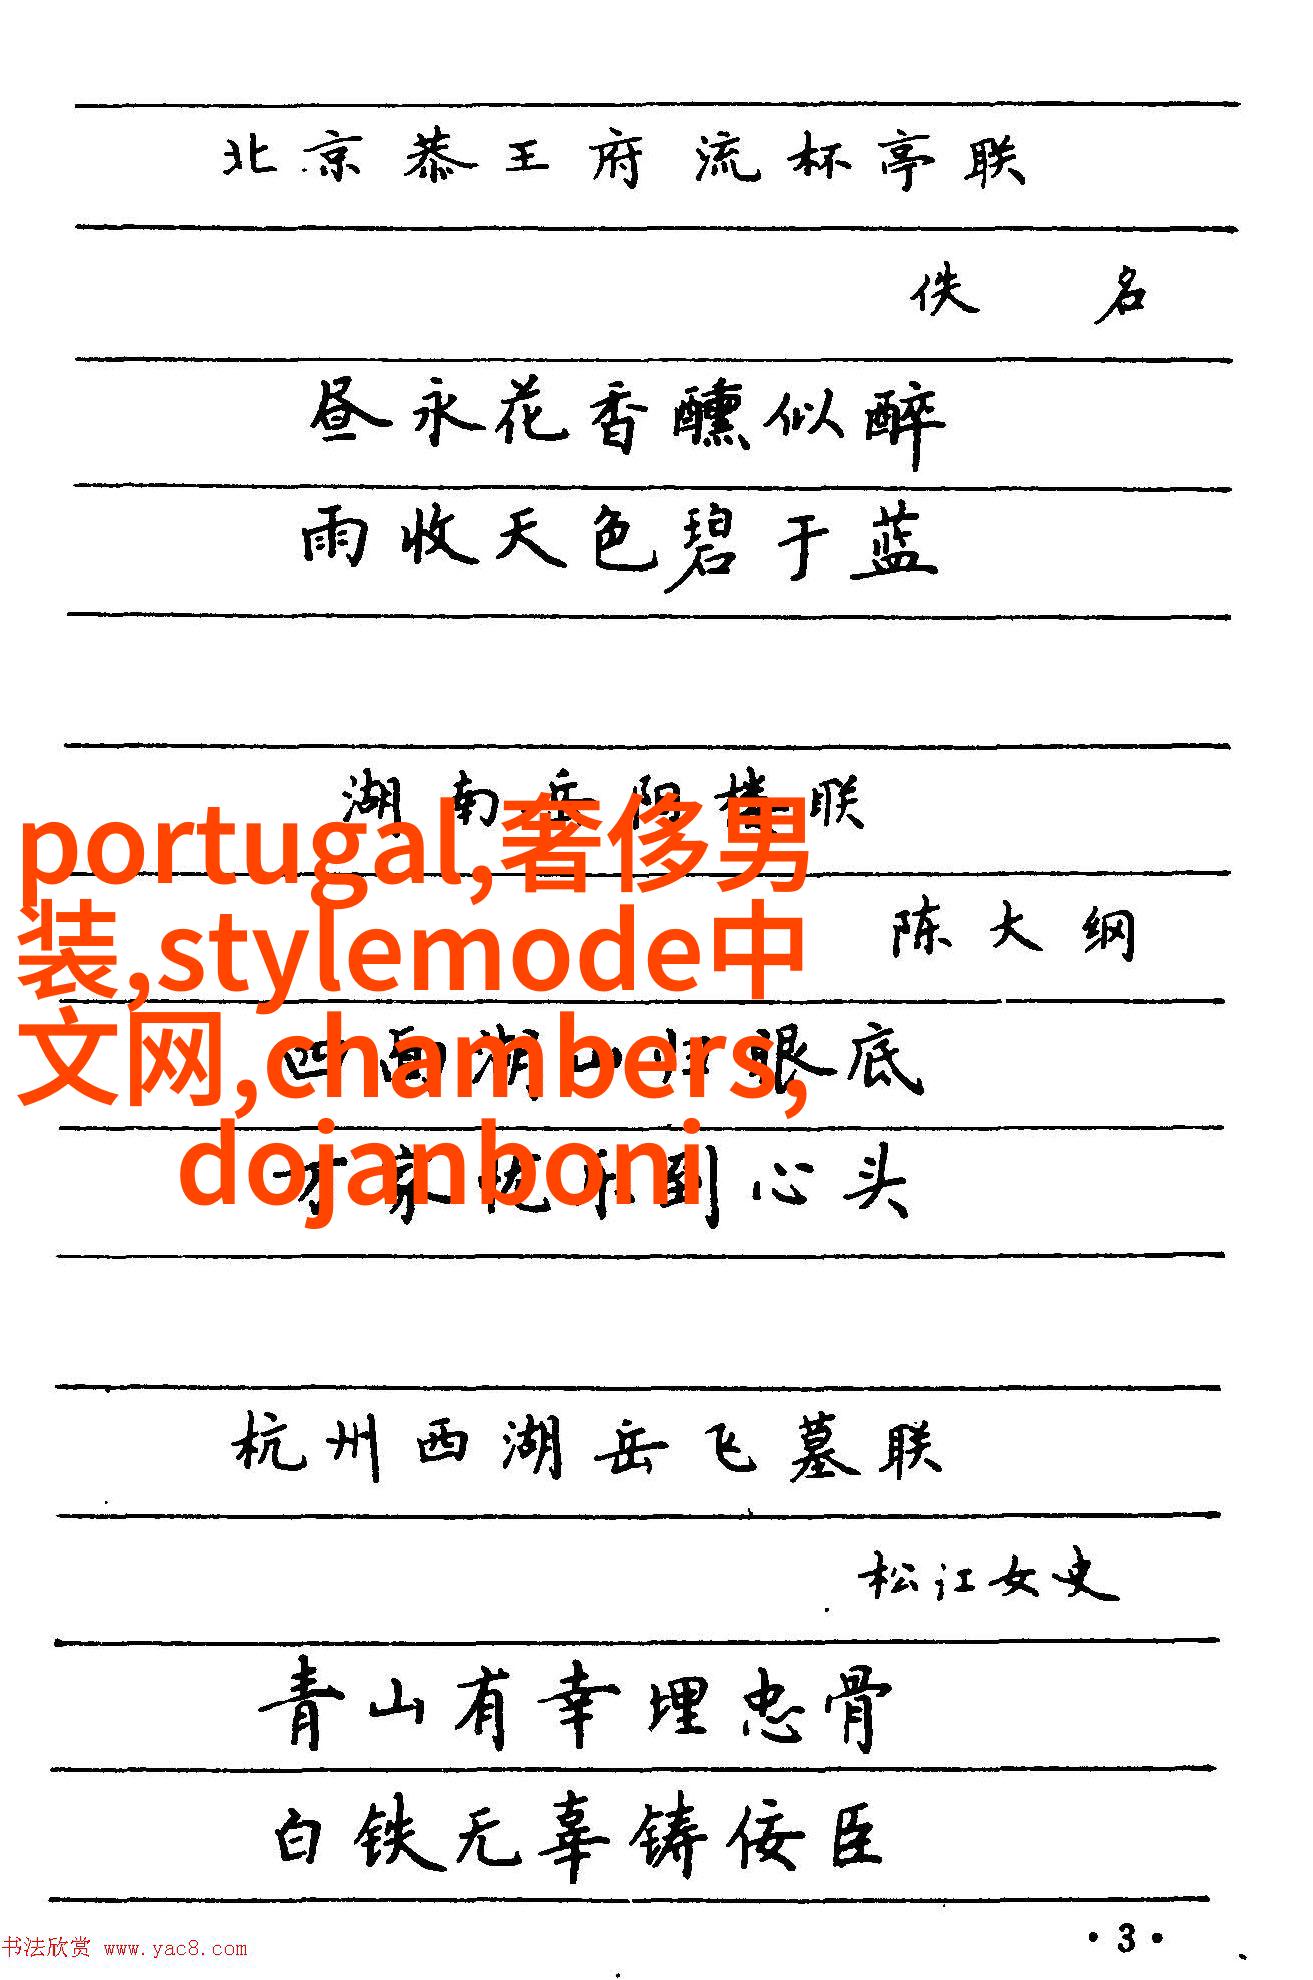 北京恭王府流杯亭联
佚名
昼永花香醺似醉
雨收天色碧于蓝
湖南岳阳楼联
portugal,奢侈男
装,stylemode中
文网,chambers,
dojanboni
陈大纲
四面湖山归眼底
万家忧乐到心头
杭州西湖岳飞墓联
松江女史
青山有幸埋忠骨
白铁无辜铸佞臣
·3·
书法欣赏 www.yac8.com